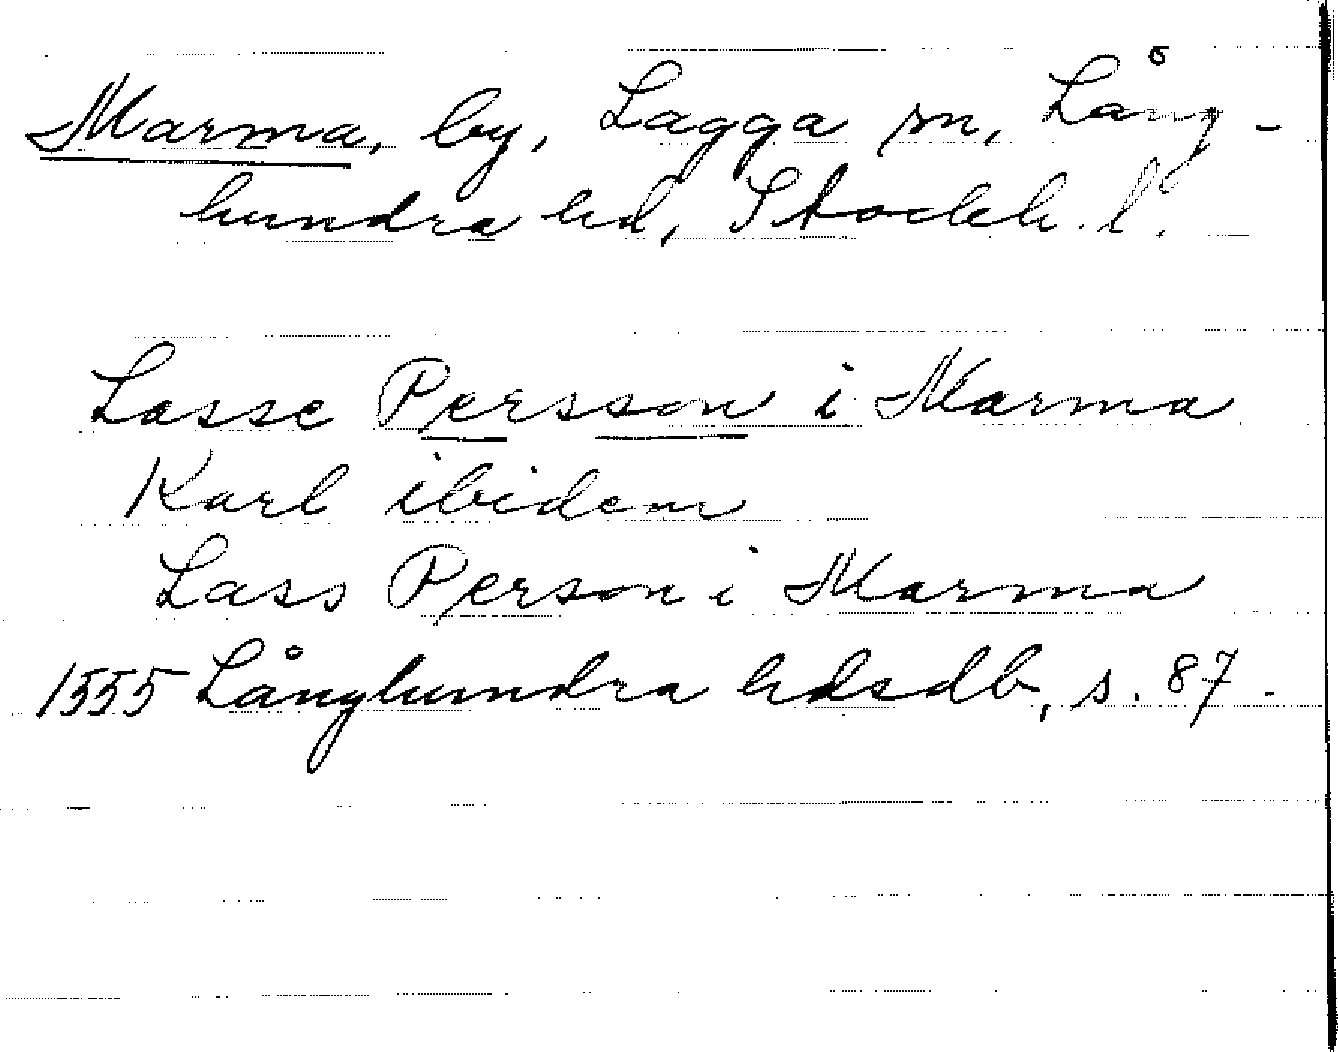 Marma, by, Lagga sn, Lång-
hundra hd, Stockh. l.
Lasse Persson i Marma
Karl ibidem
Lass Person i Marma
1555 Långhundra hdsdb, s. 87.